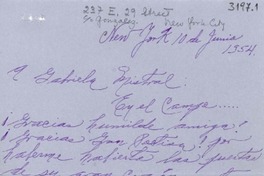 237 E. 29 Street 3197.1
New York City
New York 10 de Junio
1954.
A Gabriela Mistral.
En el Campo.....
¡Gracias humilde amiga!
¡Gracias por
haberme las puertas
de su gran